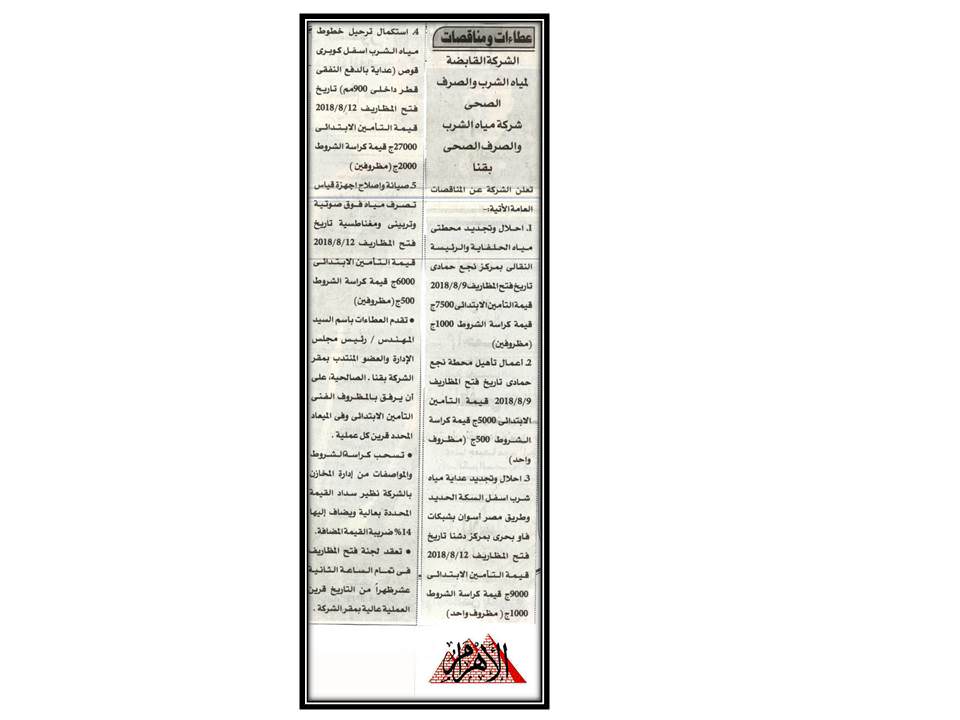 عطاءات ومناقصات
الشركة القابضة
لمياه الشرب والصرف
الصحى
شركة مياه الشرب
والصرف الصحى
بقنا
تعلن الشركة عن المناقصات
العامة الأتية:-
1. احلال وتجديد محطتى
مياه الحلفاية والرئيسة
النقالى بمركز نجع حمادى
تاريخ فتح المظاريف 2018/8/9
قيمة التأمين الابتدائى 7500ج
قيمة كراسة الشروط 1000ج
(مظروفين)
2. أعمال تأهيل محطة نجع
حمادى تاريخ فتح المظاريف
2018/8/9 قيمة التأمين
الابتدائى 5000ج قيمة كراسة
الشروط 500ج (مظروف
واحد)
3. احلال وتجديد عداية مياه
شرب اسفل السكة الحديد
وطريق مصر أسوان بشبكات
فاو بحرى بمركز دشنا تاريخ
فتح المظاريف 2018/8/12
قيمة التأمين الابتدائى
9000ج قيمة كراسة الشروط
1000ج ( مظروف واحد)
4. استكمال ترحيل خطوط
مياه الشرب اسفل كوبرى
قوص (عداية بالدفع النفقى
قطر داخلى 900مم) تاريخ
فتح المظاريف 2018/8/12
قيمة التأمين الابتدائى
27000ج قيمة كراسة الشروط
2000ج (مظروفين )
5. صيانة واصلاح اجهزة قياس
تصرف مياه فوق صوتية
وتربينى ومغناطسية تاريخ
فتح المظاريف 2018/8/12
قيمة التأمين الابتدائى
6000ج قيمة كراسة الشروط
500ج (مظروفين)
● تقدم العطاءات باسم السيد
المهندس / رئيس مجلس
الإدارة والعضو المنتدب بمقر
الشركة بقنا . الصالحية، على
أن يرفق بالمظروف الفنى
التأمين الابتدائى وفى الميعاد
المحدد قرين كل عملية .
● تسحب كراسة الشروط
والمواصفات من إدارة المخازن
بالشركة نظير سداد القيمة
المحددة بعالية ويضاف إليها
14% ضريبة القيمة المضافة.
● تعقد لجنة فتح المظاريف
فى تمام الساعة الثانية
عشر ظهراً من التاريخ قرين
العملية عالية بمقر الشركة .
الأهرام